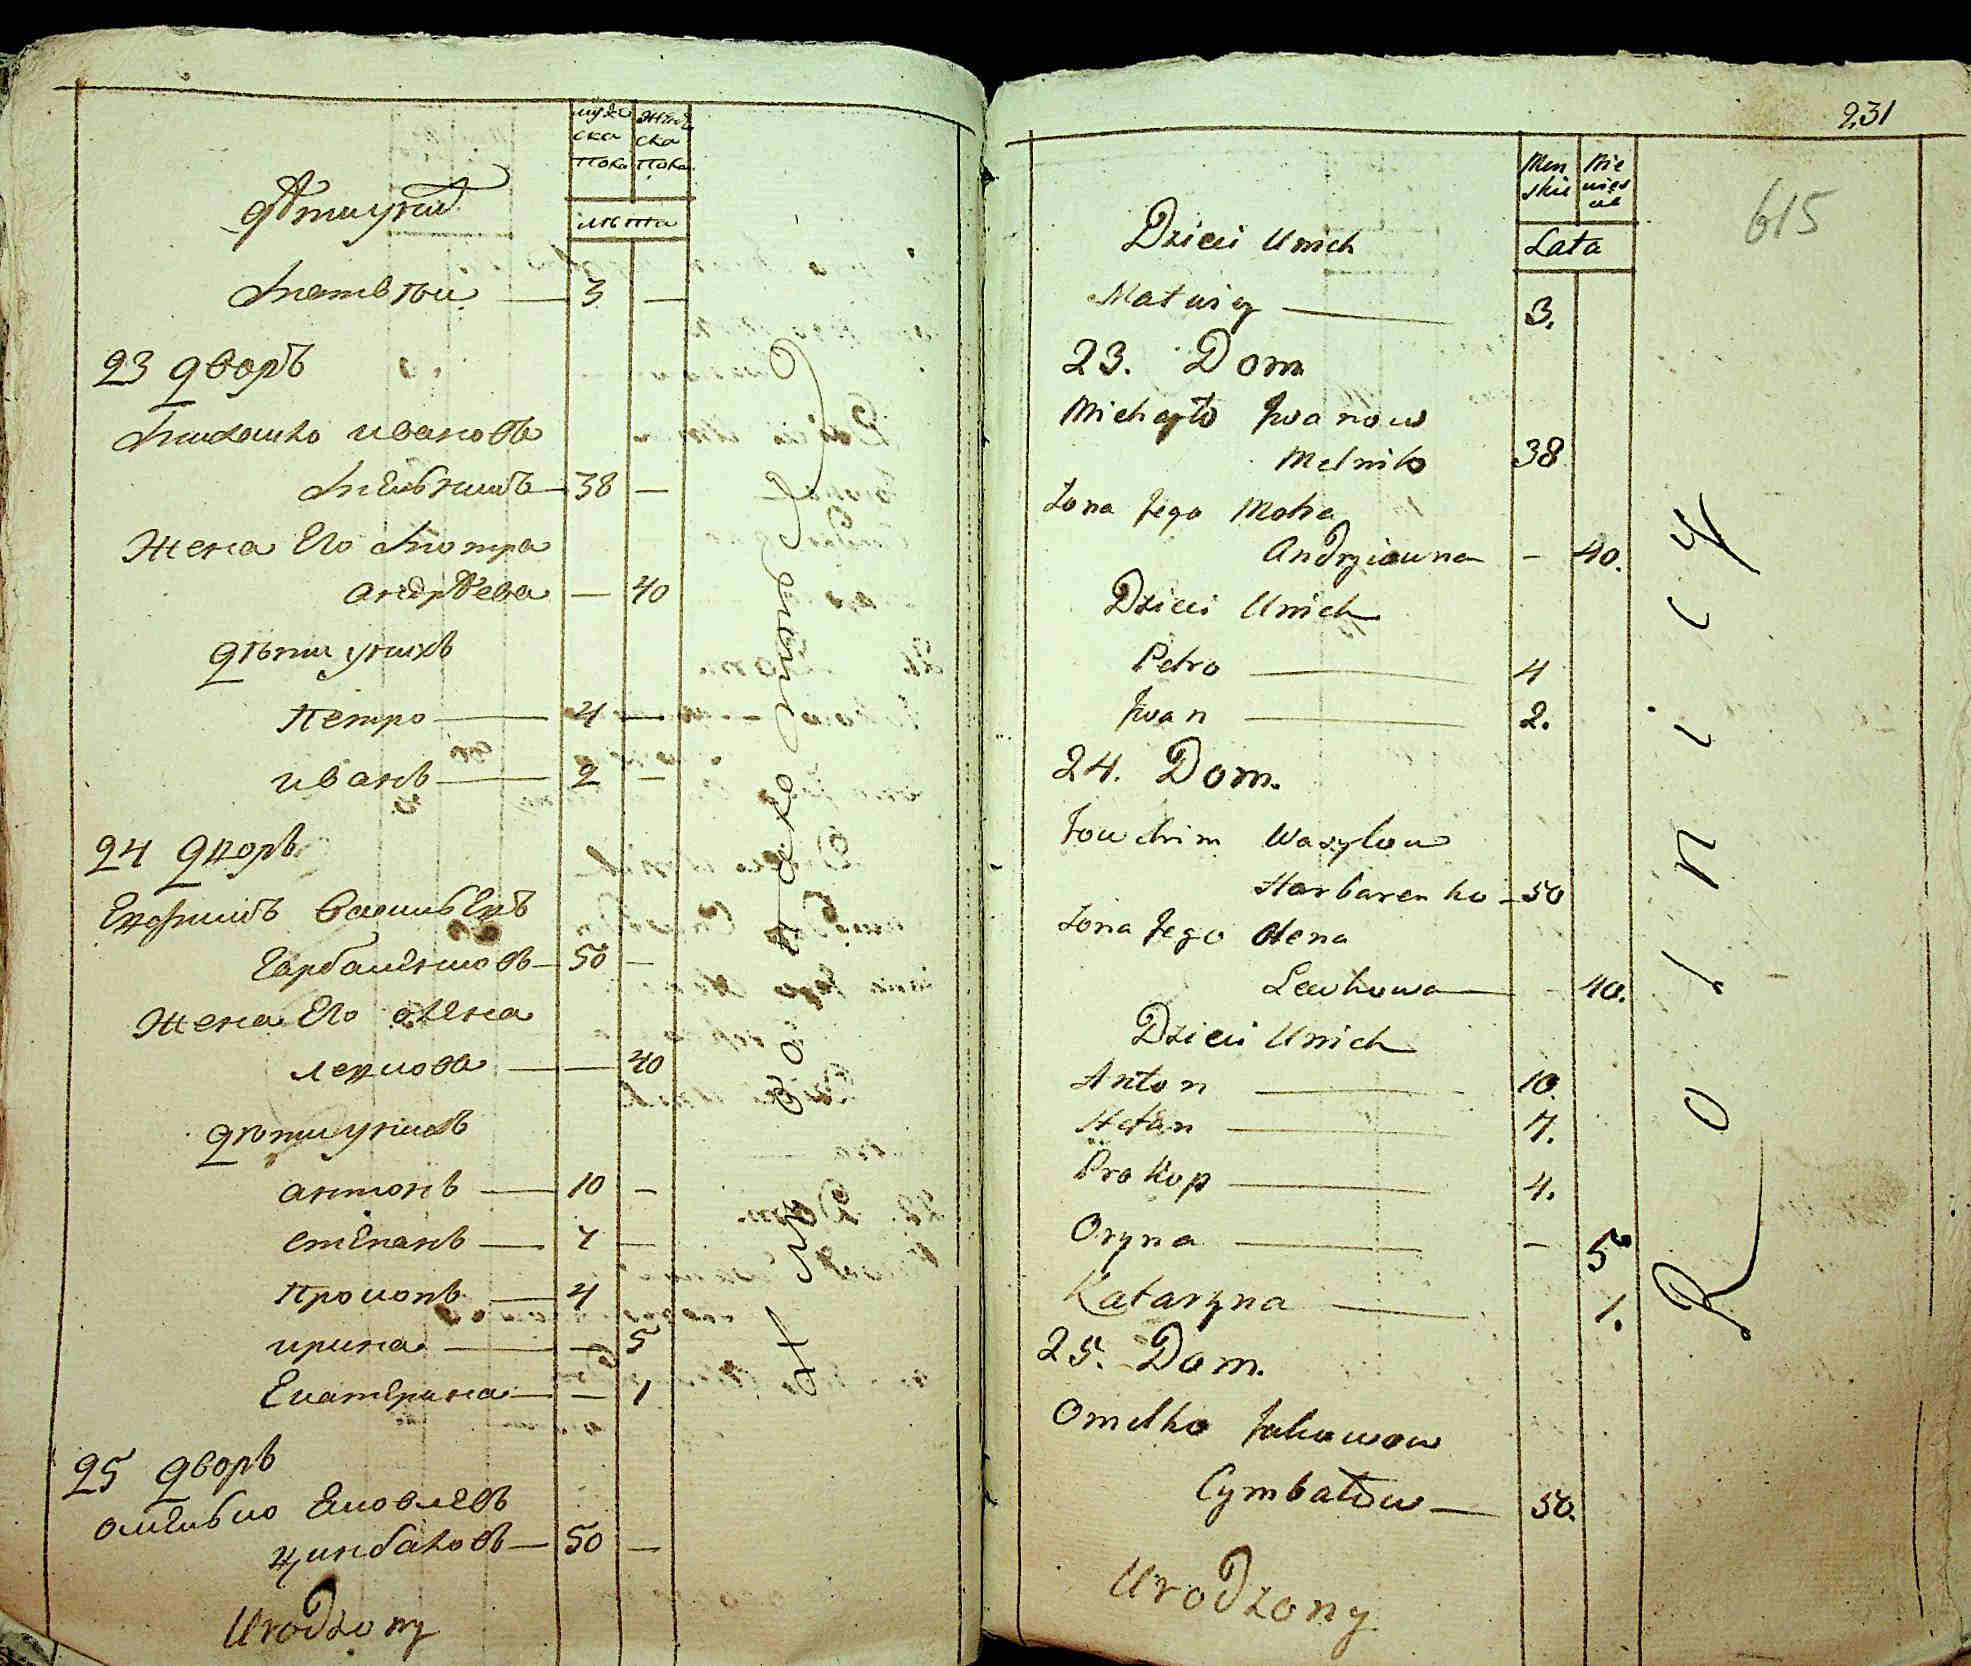 мужс жинс
ска ска
пола пола
лѣта
Дѣти у них
Матвѣи — 3 —
23 дворъ
Михаило Ивановъ
Мелникъ — 38 —
Жена Его Мотра
Андрѣева — 40
дѣти унихъ
Петро — 4 —
иванъ — 2 —
24 дворъ
Ефимъ Василевъ
Гарбаленковъ — 50 —
Жена Его олена
левкова — — 40
дѣти унихъ
антонъ — 10 —
степанъ — 7 —
Прокопъ — 4
ирина — — 5
Екатерина — — 1
25 дворъ
омелько Яковлевъ
цинбаловъ — 50 —
Urodzony
231
615
Men Nie
skie wies
cie
Lata
Dzieci Unich
Matwiy — 3.
23. Dom
Michayło Jwanow
Melnik 38
Zona Jego Motra
Andryiowna — 40.
Dzieci Unich
Petro — 4
Jwan — 2.
24. Dom.
Jouchim Wasylow
Harbarenko — 50
Zona Jego Olena
Lewkowa — 40.
Dzieci Unich
Anton — 10.
Stefan — 7.
Prokop — 4.
Oryna — — 5
Kataryna — 1.
25. Dom.
Omelko Jakowow
Cymbałow — 50.
Urodzony
Rolnicy